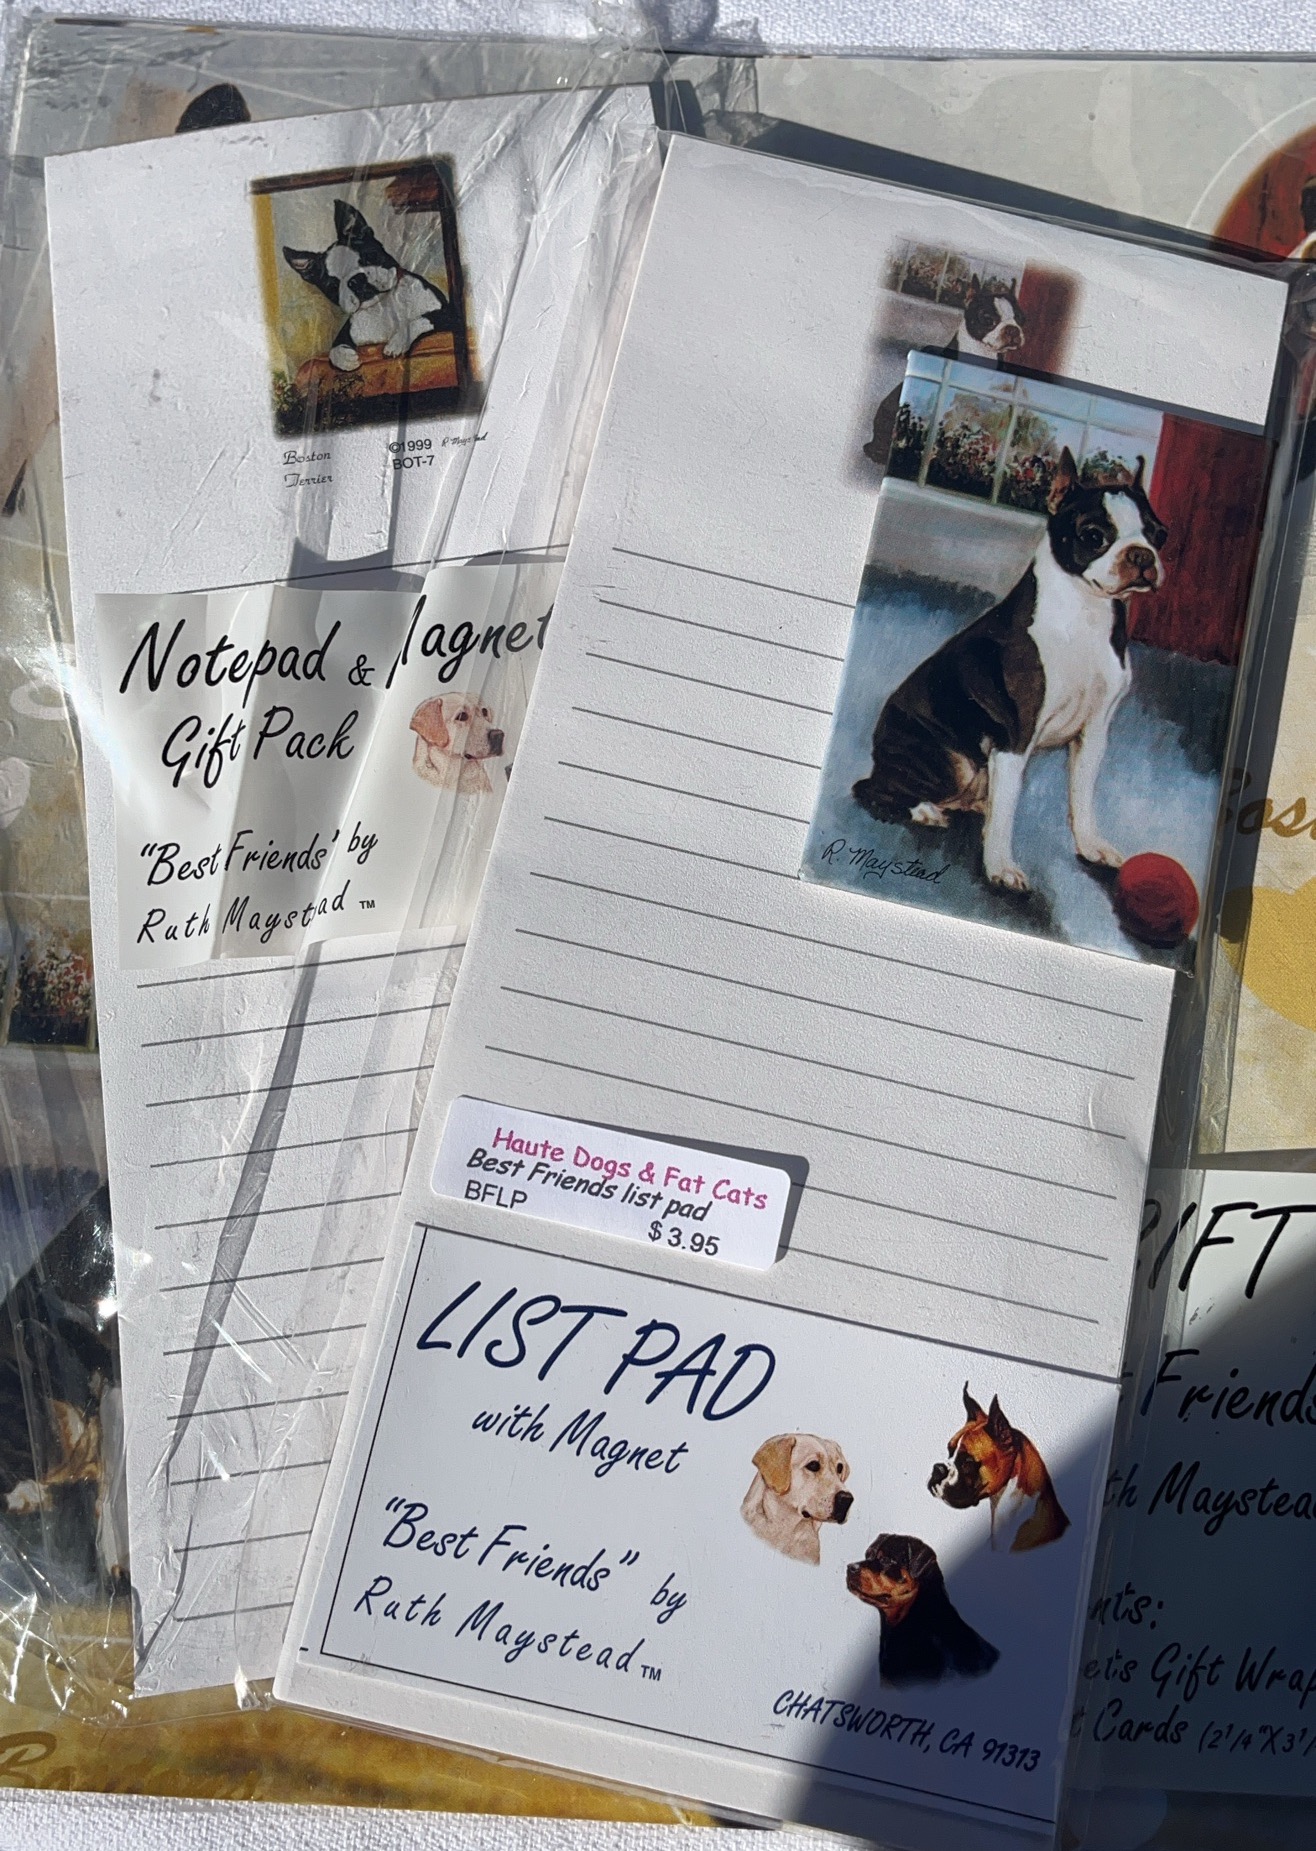 Boston
Terrier
©1999
BOT-7
Notepad & Magnet
Gift Pack
"Best Friends" by
Ruth Maystead ™
R. Maystead
Haute Dogs & Fat Cats
Best Friends list pad
BFLP
$ 3.95
LIST PAD
with Magnet
"Best Friends" by
Ruth Maystead TM
CHATSWORTH, CA 91313
GIFT
Friends
th Maystead
nts:
ets Gift Wrap
t Cards (2¼"X3